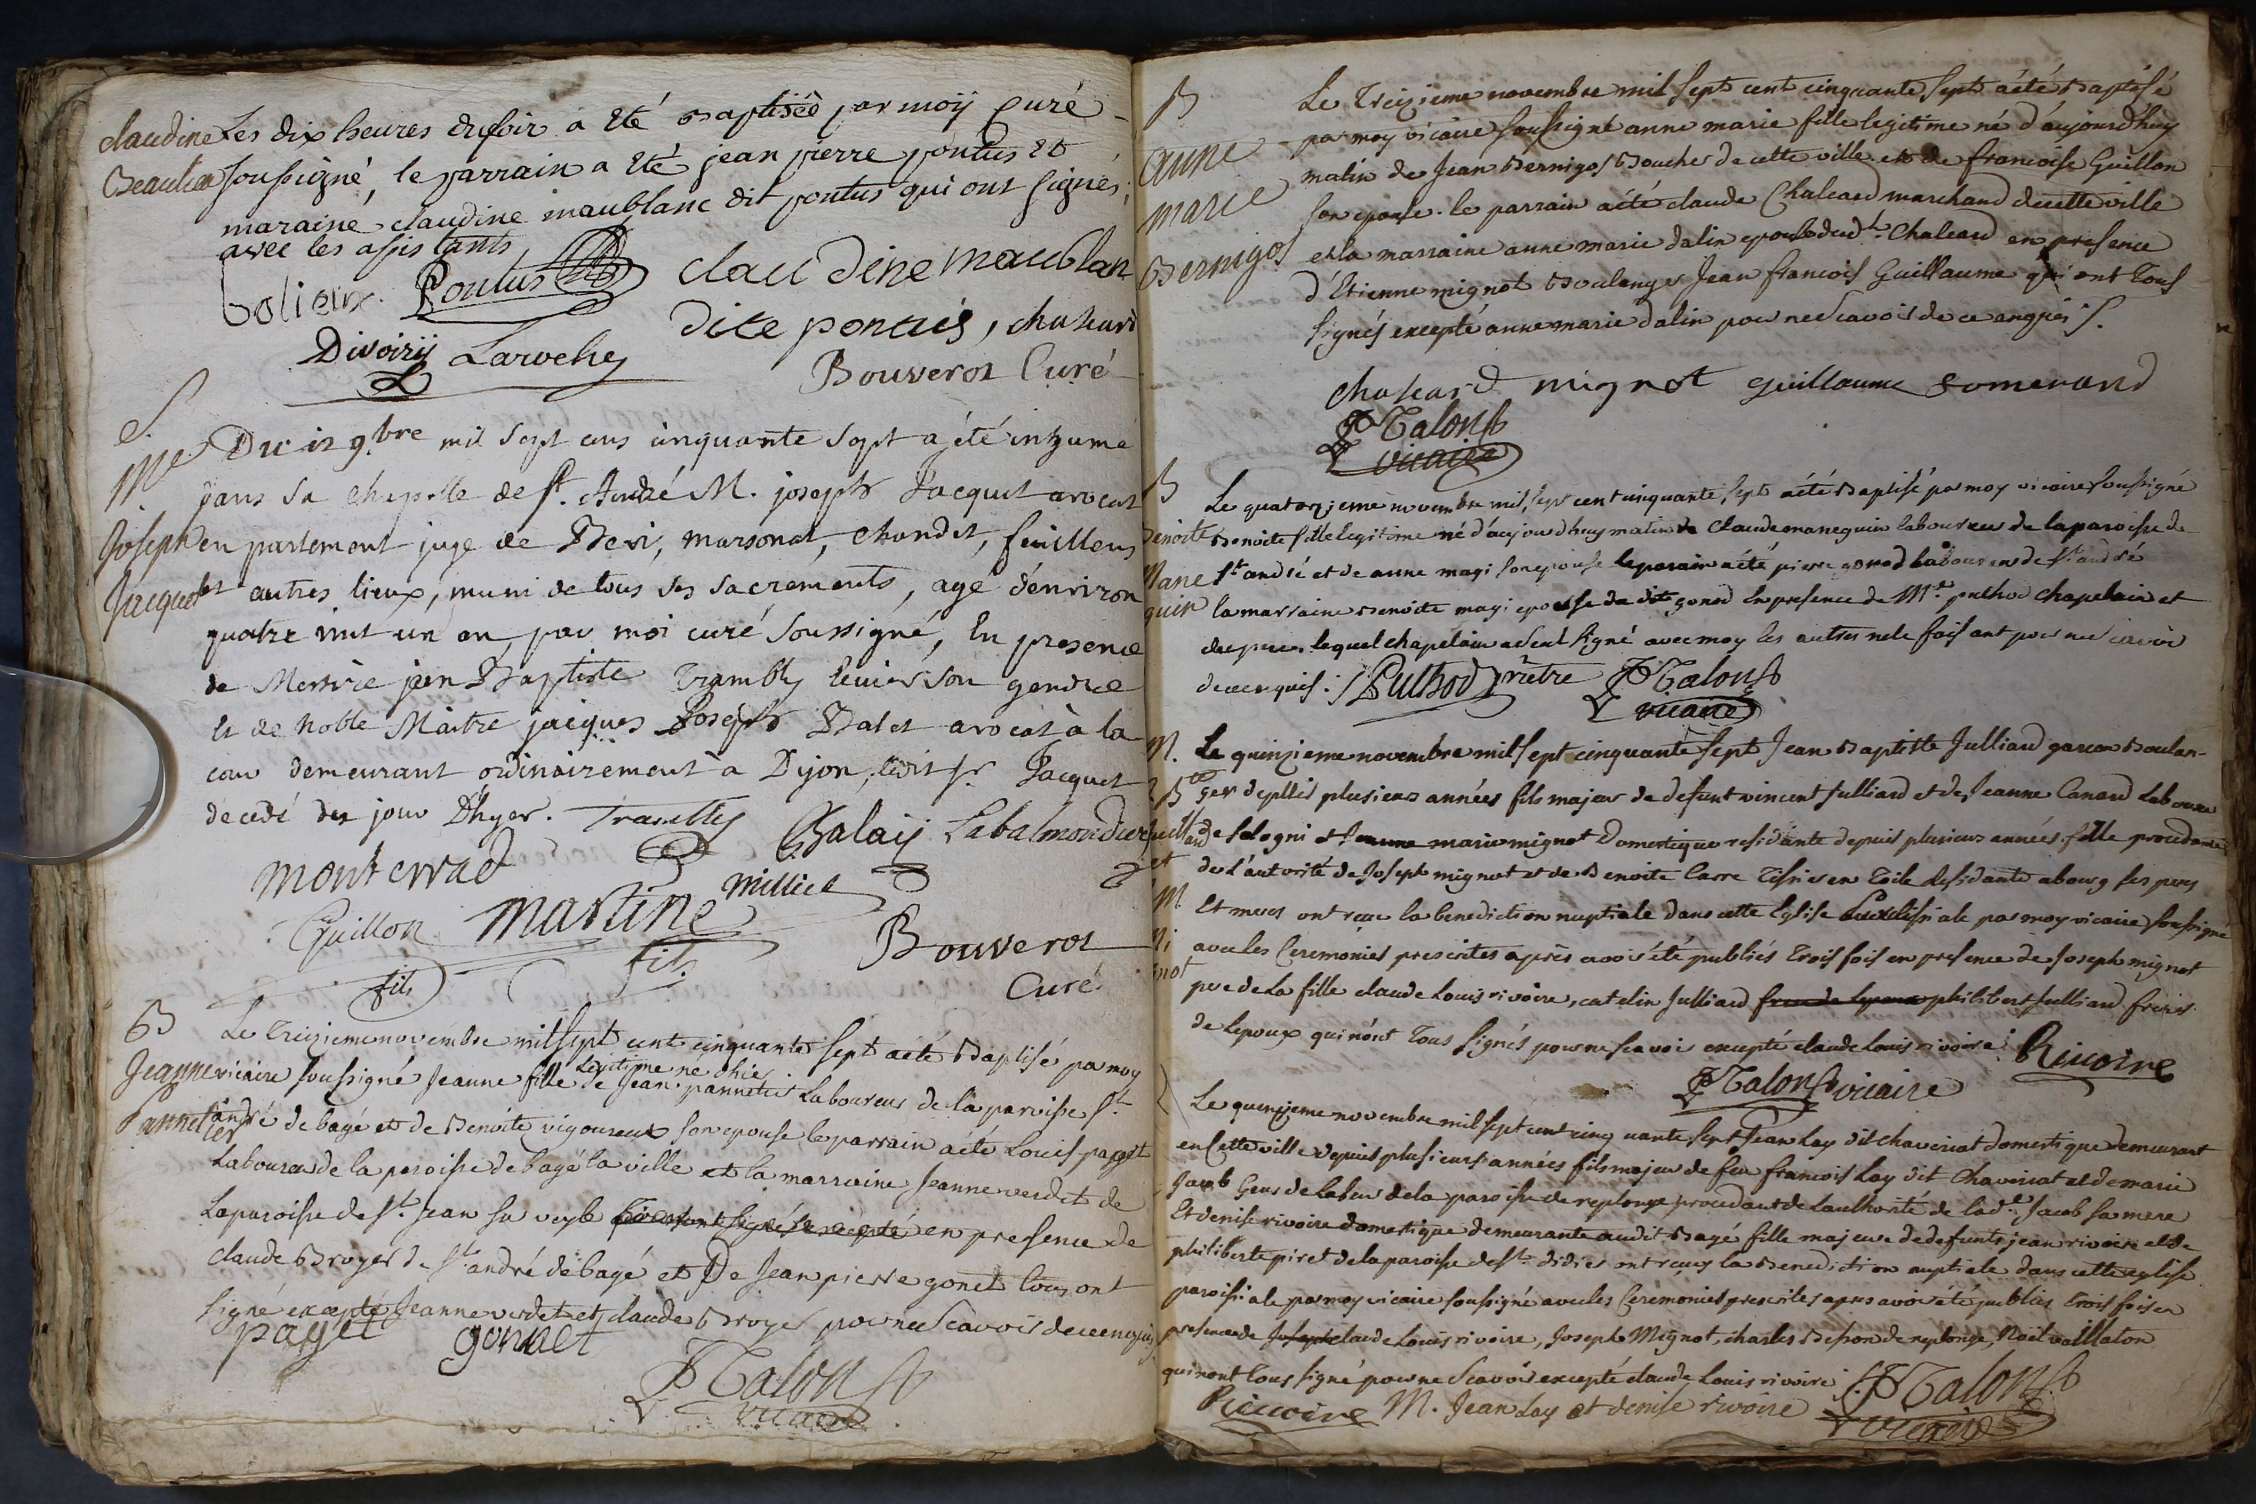 claudine Les dix heures du soir a été baptisée par moÿ curé
Beaulieu soussigné, le parrain a été jean pierre pontus et
maraine claudine maublanc dit pontus qui ont signés,
avec les assistants
Pontus claudine maublan
dite pontus, chaleard
Divoiry Laroche
Bouverot Curé
S.
Du 12 9bre mil sept cens cinquante sept a été inhumé
Me dans sa chapelle de St. André M. joseph Jacquet avocat
Joseph en parlement juge de Beri, marsonat, chandet, feuillens
Jacquet et autres lieux, muni de tous ses sacrements, agé d'environ
quatre vint un an, par moi curé soussigné, En presence
de Messire jean Baptiste Trambly son gendre
Et de noble Maitre jacques Joseph Balet avocat à la
cour demeurant ordinairement à Dijon, ledit sr Jacquet
decedé du jour D'hyer. Balaij Labalmondiere
monterrad
Guillon fils martine fils millied
Bouverot
Curé
B Le Treizieme novembre mil sept cent cinquante sept a été Baptisé par moy
Legitime né hier
Jeanne vicaire soussigné Jeanne fille de Jean pannetier Laboureur de la paroisse St
Pannetier andré de bagé et de Benoite vigoureux son epouse le parrain a été Louis paget
Laboureur de la paroisse de bagé la ville et la marraine Jeanne verdet de
La paroisse de St. Jean su veyle en presence de
claude Broyer de St andré de bagé et De Jean pierre gonet tous ont
signé excepté Jeanne verdet et claude Broyer pour ne Scavoir de ce enquis
paget gonnet
Talon
vicaire
B Le Treizieme novembre mil sept cent cinquante sept a été Baptisé
par moy vicaire soussigné anne marie fille legitime né d'aujourd'huy
anne matin de Jean Bernigos Boucher de cette ville et de francoise Guillon
marie son epouse. le parrain a été claude Chaleard marchand de cette ville
Bernigos et la marraine anne marie dalin epouse dudt. Chaleard en presence
d'Etienne mignot Boulanger Jean francois Guillaume qui ont Tous
signés excepté anne marie dalin pour ne Scavoir de ce anquis
chaleard mignot guillaume
Talon
vicaire
B Le quatorzieme novembre mil sept cent cinquante sept a été Baptisé par moy vicaire soussigné
Benoite Benoite fille legitime né d'aujourd'huy matin de claude manequin laboureur de la paroisse de
Mane St andré et de anne magi son epouse le parain a été pierre gonod laboureur de St andré
quin la marraine Benoite magi epouse du dit gonod En presence de Mre puthod Chapelain et
lequel chapelain a seul signé avec moy les autres ne le faisant pour ne scavoir
de ce enquis. Puthod Prêtre Talon
vicaire
M. Le quinzieme novembre mil sept cinquante sept Jean Baptiste Julliard garcon Boulan-
J Bte ger depuis plusieurs années fils majeur de defunt vincent Julliard et de Jeanne Canard Laboureur
Juilliard de Sologni et Jeanne marie mignot Domestique residante depuis plusieurs années fille procedante
et de L'autorité de Joseph mignot et de Benoite Carre Tissier en Toile residante a bourg ses pere
M. Et meres ont reçu la benediction nuptiale dans cette Eglise paroissiale par moy vicaire soussigné
Mi avec les Ceremonies prescrites après avoir été publiés Trois fois en presence de Joseph mignot
gnot pere de La fille claude Louis rivoire, catelin Julliard philibert Julliard freres
de Lepoux qui n'ont Tous signés pour ne scavoir excepté claude Louis rivoire. Rivoire
Talon vicaire
Le quinzieme novembre mil sept cent cinquante sept Jean Lay dit chaverivat domestique demeurant
en Cette ville depuis plusieurs années fils majeur de feu francois Lay dit Chaverivat et de marie
Jacob Gens de Labeur de la paroisse de replonge procedant de Laulhorité de lade. Jacob sa mere
Et denise rivoire domestique demeurante audit Bagé fille majeure de defunts jean rivoire et de
philiberte piret de la paroisse de St didier ont reçu la Benediction nuptiale dans cette eglise
paroissiale par moy vicaire soussigné avec les Ceremonies prescrites apres avoir été publiés Trois fois en
presence de Joseph claude Louis rivoire, Joseph Mignot, charles Besson de replonge, Noël vaillaton
qui n'ont tous signé pour ne Scavoir excepté claude Louis rivoire. Talon
Rivoire M. Jean Lay et denise rivoire vicaire